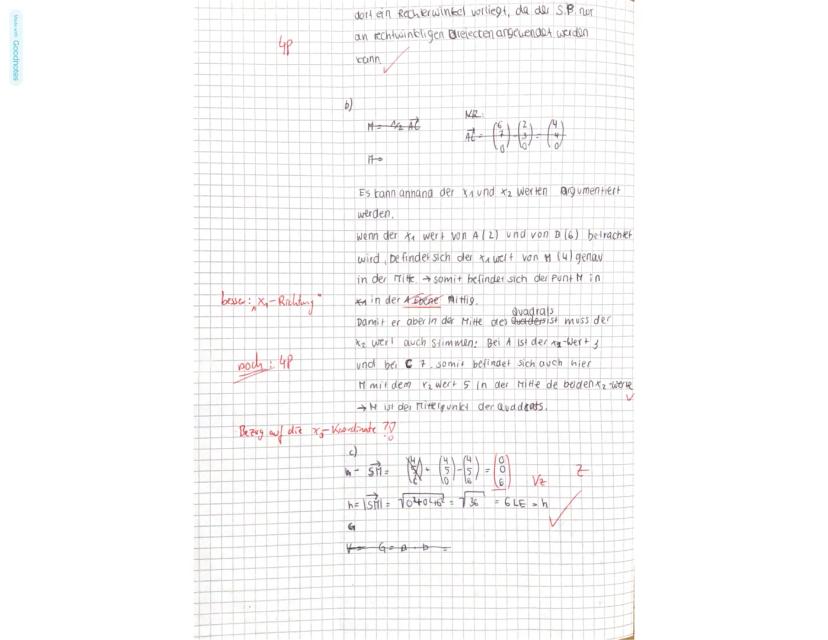 Made with Goodnotes
dort ein Rechterwinkel vorliegt, da der S.P. nur
an rechtwinkligen Dreiecken angewendet werden
kann
4P
b)
M = 1/2 AC
NR:
AC = (6 7 0) - (2 3 0) = (4 4 0)
M
Es kann anhand der x1 und x2 Werten argumentiert
werden.
wenn der x1 wert von A (2) und von B (6) betrachtet
wird, befindet sich der x1 wert von M (4) genau
in der Mitte → somit befindet sich der Punkt M in
x1 in der Ebene Mittig.
besser: "x1-Richtung"
Damit er aber in der Mitte des Quadrats ist muss der
x2 wert auch stimmen: Bei A ist der x2-Wert 3
und bei C 7. somit befindet sich auch hier
noch: 4P
M mit dem x2 wert 5 in der Mitte de beiden x2-werte
→ M ist der Mittelpunkt der Quadrats.
Bezug auf die x3-Koordinate ?!
c)
h = SM = (4 5 0) - (4 5 6) = (0 0 6)
Vz
h = |SM| = √0²+0²+6² = √36 = 6 LE = h
G
V = G = a · b =